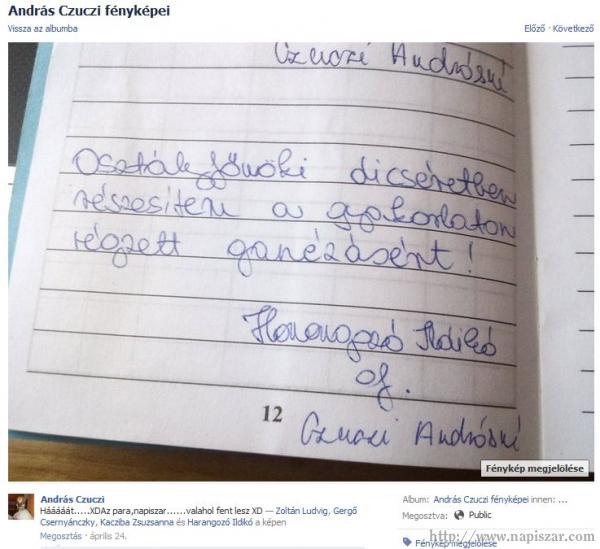 András Czuczi fényképei
Vissza az albumba
Előző · Következő
Czuczi Andrásné
Osztályfőnöki dicséretben
részesítem a gyakorlaton
végzett ganézásért!
Harangozó Ildikó
of.
12
Czuczi Andrásné
Fénykép megjelölése
András Czuczi
Hááááát.....XDAz para,napiszar......valahol fent lesz XD — Zoltán Ludvig, Gergő
Csernyánczky, Kacziba Zsuzsanna és Harangozó Ildikó a képen
Megosztás · április 24.
Album: András Czuczi fényképei innen: ...
Megosztva: Public
Fénykép megjelölése
http://www.napiszar.com